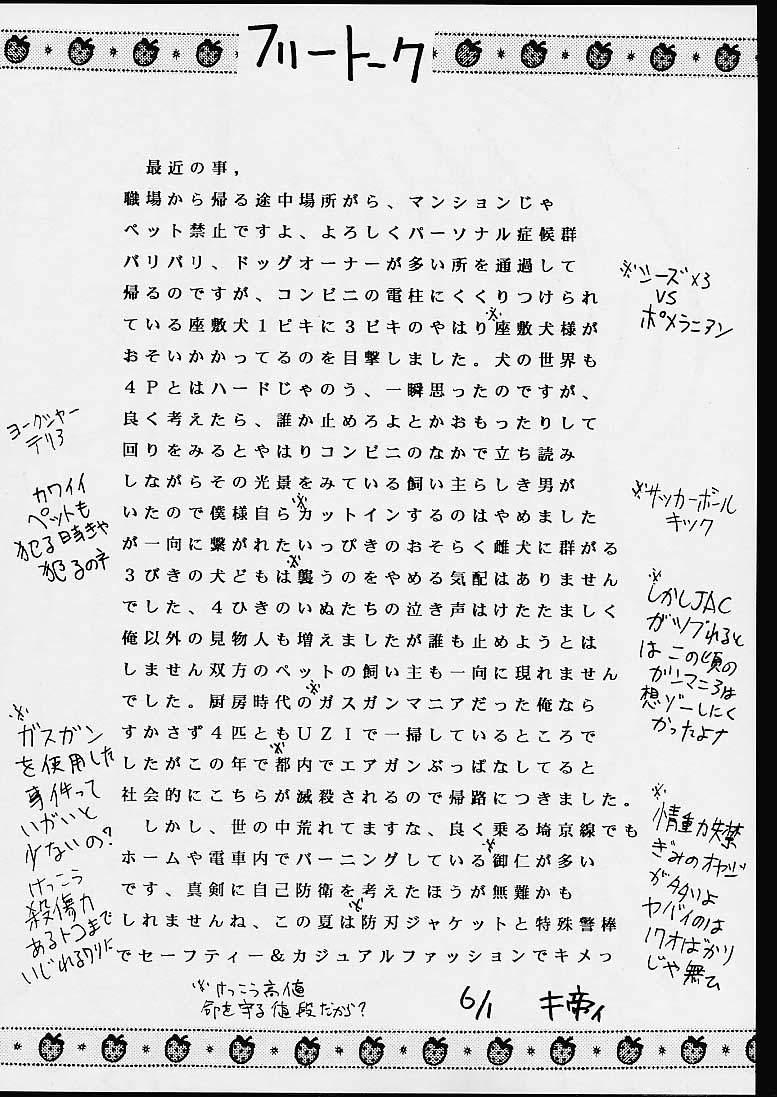 フリートーク
最近の事,
職場から帰る途中場所がら、マンションじゃ
ペット禁止ですよ、よろしくパーソナル症候群
バリバリ、ドッグオーナーが多い所を通過して
帰るのですが、コンビニの電柱にくくりつけられ
ている座敷犬1ピキに3ビキのやはり座敷犬様が
おそいかかってるのを目撃しました。犬の世界も
4Pとはハードじゃのう、一瞬思ったのですが、
良く考えたら、誰か止めろよとかおもったりして
回りをみるとやはりコンビニのなかで立ち読み
しながらその光景をみている飼い主らしき男が
いたので僕様自らカットインするのはやめました
が一向に繋がれたいっぴきのおそらく雌犬に群がる
3びきの犬どもは襲うのをやめる気配はありません
でした、4ひきのいぬたちの泣き声はけたたましく
俺以外の見物人も増えましたが誰も止めようとは
しません双方のペットの飼い主も一向に現れません
でした。厨房時代のガスガンマニアだった俺なら
すかさず4匹ともUZIで一掃しているところで
したがこの年で都内でエアガンぶっぱなしてると
社会的にこちらが滅殺されるので帰路につきました。
しかし、世の中荒れてますな、良く乗る埼京線でも
ホームや電車内でバーニングしている御仁が多い
です、真剣に自己防衛を考えたほうが無難かも
しれませんね、この夏は防刃ジャケットと特殊警棒
でセーフティー&カジュアルファッションでキメっ
※シーズ×3
VS
ポメラニアン
ヨークシャー
テリア
カワイイ
ペットも
犯る時きゃ
犯るのネ
※サッカーボール
キック
※
しかしJAC
がツブれると
はこの頃の
ガンマニアは
想ゾーしにく
かったよナ
※
ガスガン
を使用した
事件って
いがいと
少ないの?
けっこう
殺傷力
あるトコまで
いじれるワリに
※
情重力失禁
ぎみのオヤジ
が多いよ
ヤバイのは
17才ばかり
じゃ無ひ
※けっこう高値
命を守る値段だから?
6/1